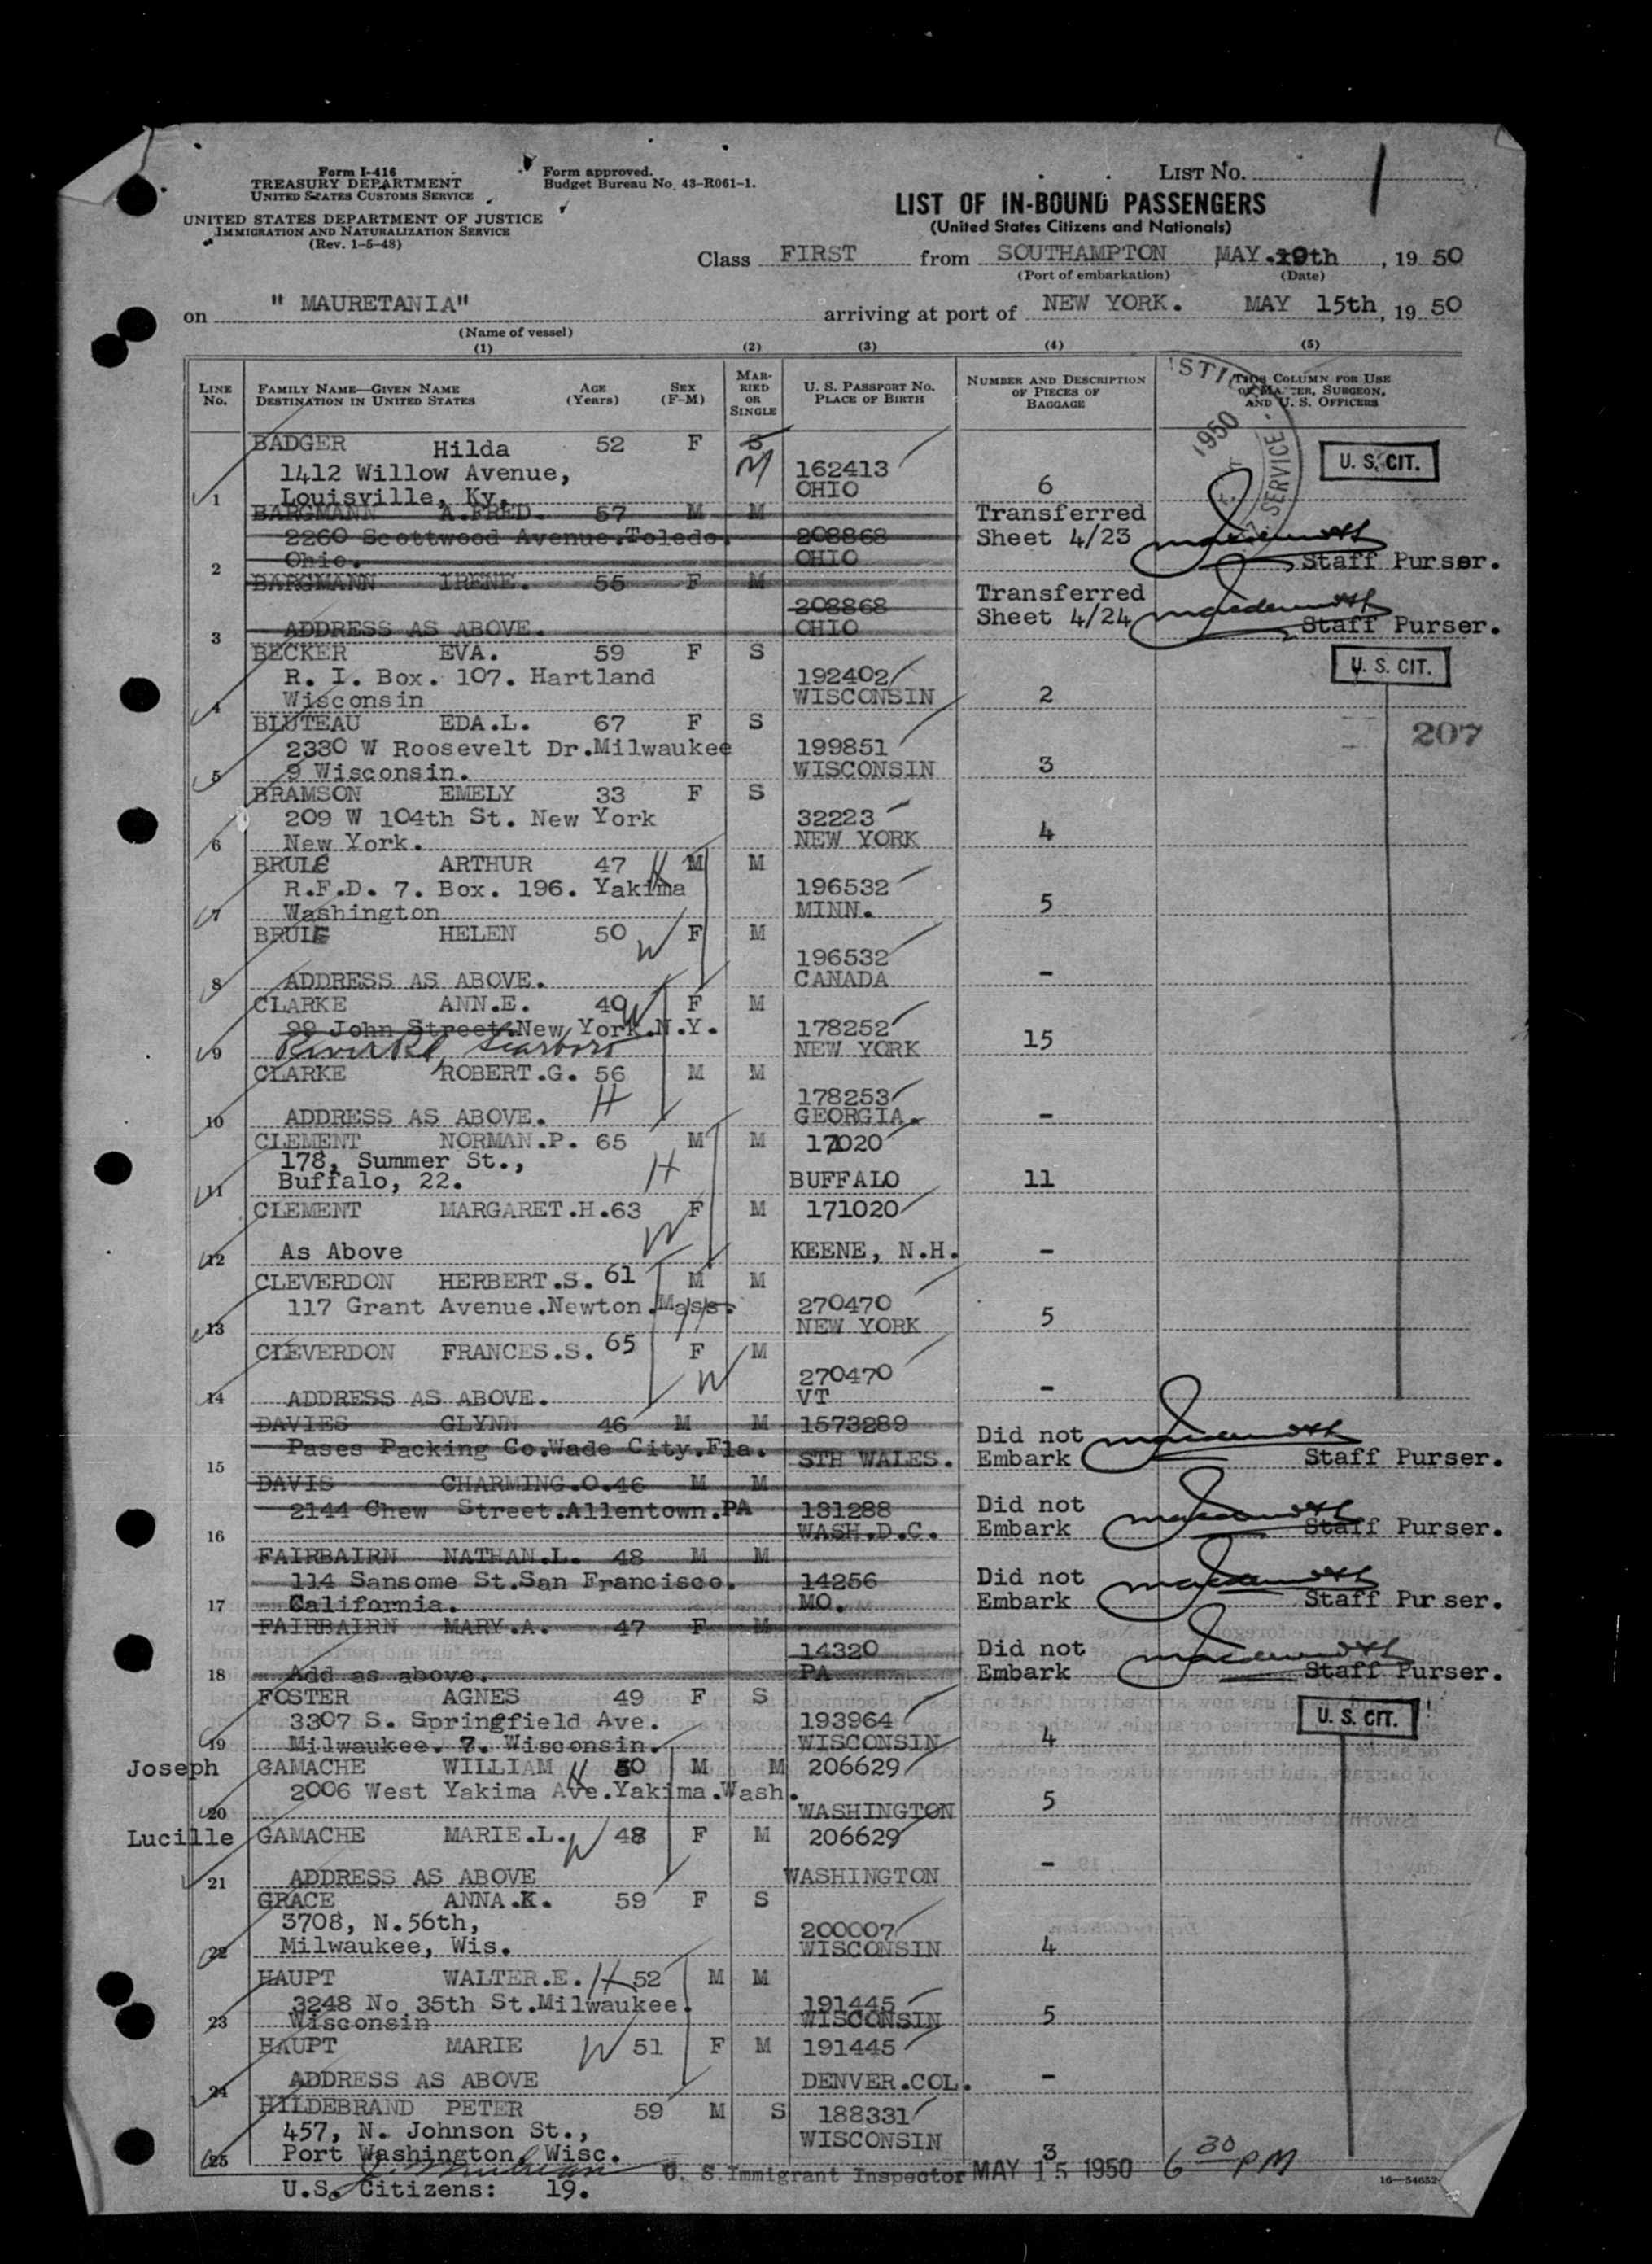 Form I-416
TREASURY DEPARTMENT
UNITED STATES CUSTOMS SERVICE
UNITED STATES DEPARTMENT OF JUSTICE
IMMIGRATION AND NATURALIZATION SERVICE
(Rev. 1-5-48)
Form approved.
Budget Bureau No. 43-R061-1.
LIST NO. 1
LIST OF IN-BOUND PASSENGERS
(United States Citizens and Nationals)
Class FIRST from SOUTHAMPTON MAY. th, 19 50
(Port of embarkation) (Date)
on " MAURETANIA" arriving at port of NEW YORK. MAY 15th, 19 50
(Name of vessel)
(1) (2) (3) (4) (5)
LINE NO. FAMILY NAME—GIVEN NAME DESTINATION IN UNITED STATES AGE (Years) SEX (F-M) MARRIED OR SINGLE U. S. PASSPORT NO. PLACE OF BIRTH NUMBER AND DESCRIPTION OF PIECES OF BAGGAGE THIS COLUMN FOR USE OF MASTER, SURGEON, AND U. S. OFFICERS
STIC
1950
SERVICE
BADGER Hilda 52 F S
1412 Willow Avenue, M 162413 U. S. CIT.
1 Louisville, Ky. OHIO 6
BARGMANN A.FRED. 57 M M Transferred
2260 Scottwood Avenue.Toledo. 208868 Sheet 4/23
2 Ohio. OHIO Staff Purser.
BARGMANN IRENE. 55 F M Transferred
208868 Sheet 4/24
3 ADDRESS AS ABOVE. OHIO Staff Purser.
BECKER EVA. 59 F S U. S. CIT.
R. I. Box. 107. Hartland 192402
4 Wisconsin WISCONSIN 2
BLUTEAU EDA.L. 67 F S 207
2330 W Roosevelt Dr.Milwaukee 199851
5 9 Wisconsin. WISCONSIN 3
BRAMSON EMELY 33 F S
209 W 104th St. New York 32223
6 New York. NEW YORK 4
BRULE ARTHUR 47 H M M
R.F.D. 7. Box. 196. Yakima 196532
7 Washington MINN. 5
BRULE HELEN 50 W F M
196532
8 ADDRESS AS ABOVE. CANADA -
CLARKE ANN.E. 49 W F M
99 John Street.New York.N.Y. 178252
9 River Rd, Scarboro NEW YORK 15
CLARKE ROBERT.G. 56 M M
H 178253
10 ADDRESS AS ABOVE. GEORGIA. -
CLEMENT NORMAN.P. 65 M M 171020
178, Summer St., H
11 Buffalo, 22. BUFFALO 11
CLEMENT MARGARET.H.63 F M 171020
W
12 As Above KEENE, N.H. -
CLEVERDON HERBERT.S. 61 M M
117 Grant Avenue.Newton.Mass. 270470
13 H NEW YORK 5
CLEVERDON FRANCES.S. 65 F M
W 270470
14 ADDRESS AS ABOVE. VT -
DAVIES GLYNN 46 M M 1573289 Did not
Pases Packing Co.Wade City.Fla.
15 STH WALES. Embark Staff Purser.
DAVIS CHARMING.O.46 M M
2144 Chew Street.Allentown.PA 131288 Did not
16 WASH.D.C. Embark Staff Purser.
FAIRBAIRN NATHAN.L. 48 M M
114 Sansome St.San Francisco. 14256 Did not
17 California. MO. Embark Staff Purser.
FAIRBAIRN MARY.A. 47 F M
14320 Did not
18 Add as above. PA Embark Staff Purser.
FOSTER AGNES 49 F S
3307 S. Springfield Ave. 193964 U. S. CIT.
19 Milwaukee. 7. Wisconsin. WISCONSIN 4
Joseph GAMACHE WILLIAM H 50 M M 206629
2006 West Yakima Ave.Yakima.Wash.
20 WASHINGTON 5
Lucille GAMACHE MARIE.L. W 48 F M 206629
21 ADDRESS AS ABOVE WASHINGTON -
GRACE ANNA.K. 59 F S
3708, N.56th, 200007
22 Milwaukee, Wis. WISCONSIN 4
HAUPT WALTER.E. H 52 M M
3248 No 35th St.Milwaukee. 191445
23 Wisconsin WISCONSIN 5
HAUPT MARIE W 51 F M 191445
24 ADDRESS AS ABOVE DENVER.COL. -
HILDEBRAND PETER 59 M S 188331
457, N. Johnson St., WISCONSIN
25 Port Washington, Wisc. 3
U. S. Immigrant Inspector MAY 15 1950 6 30 PM
U.S. Citizens: 19.
16—54652